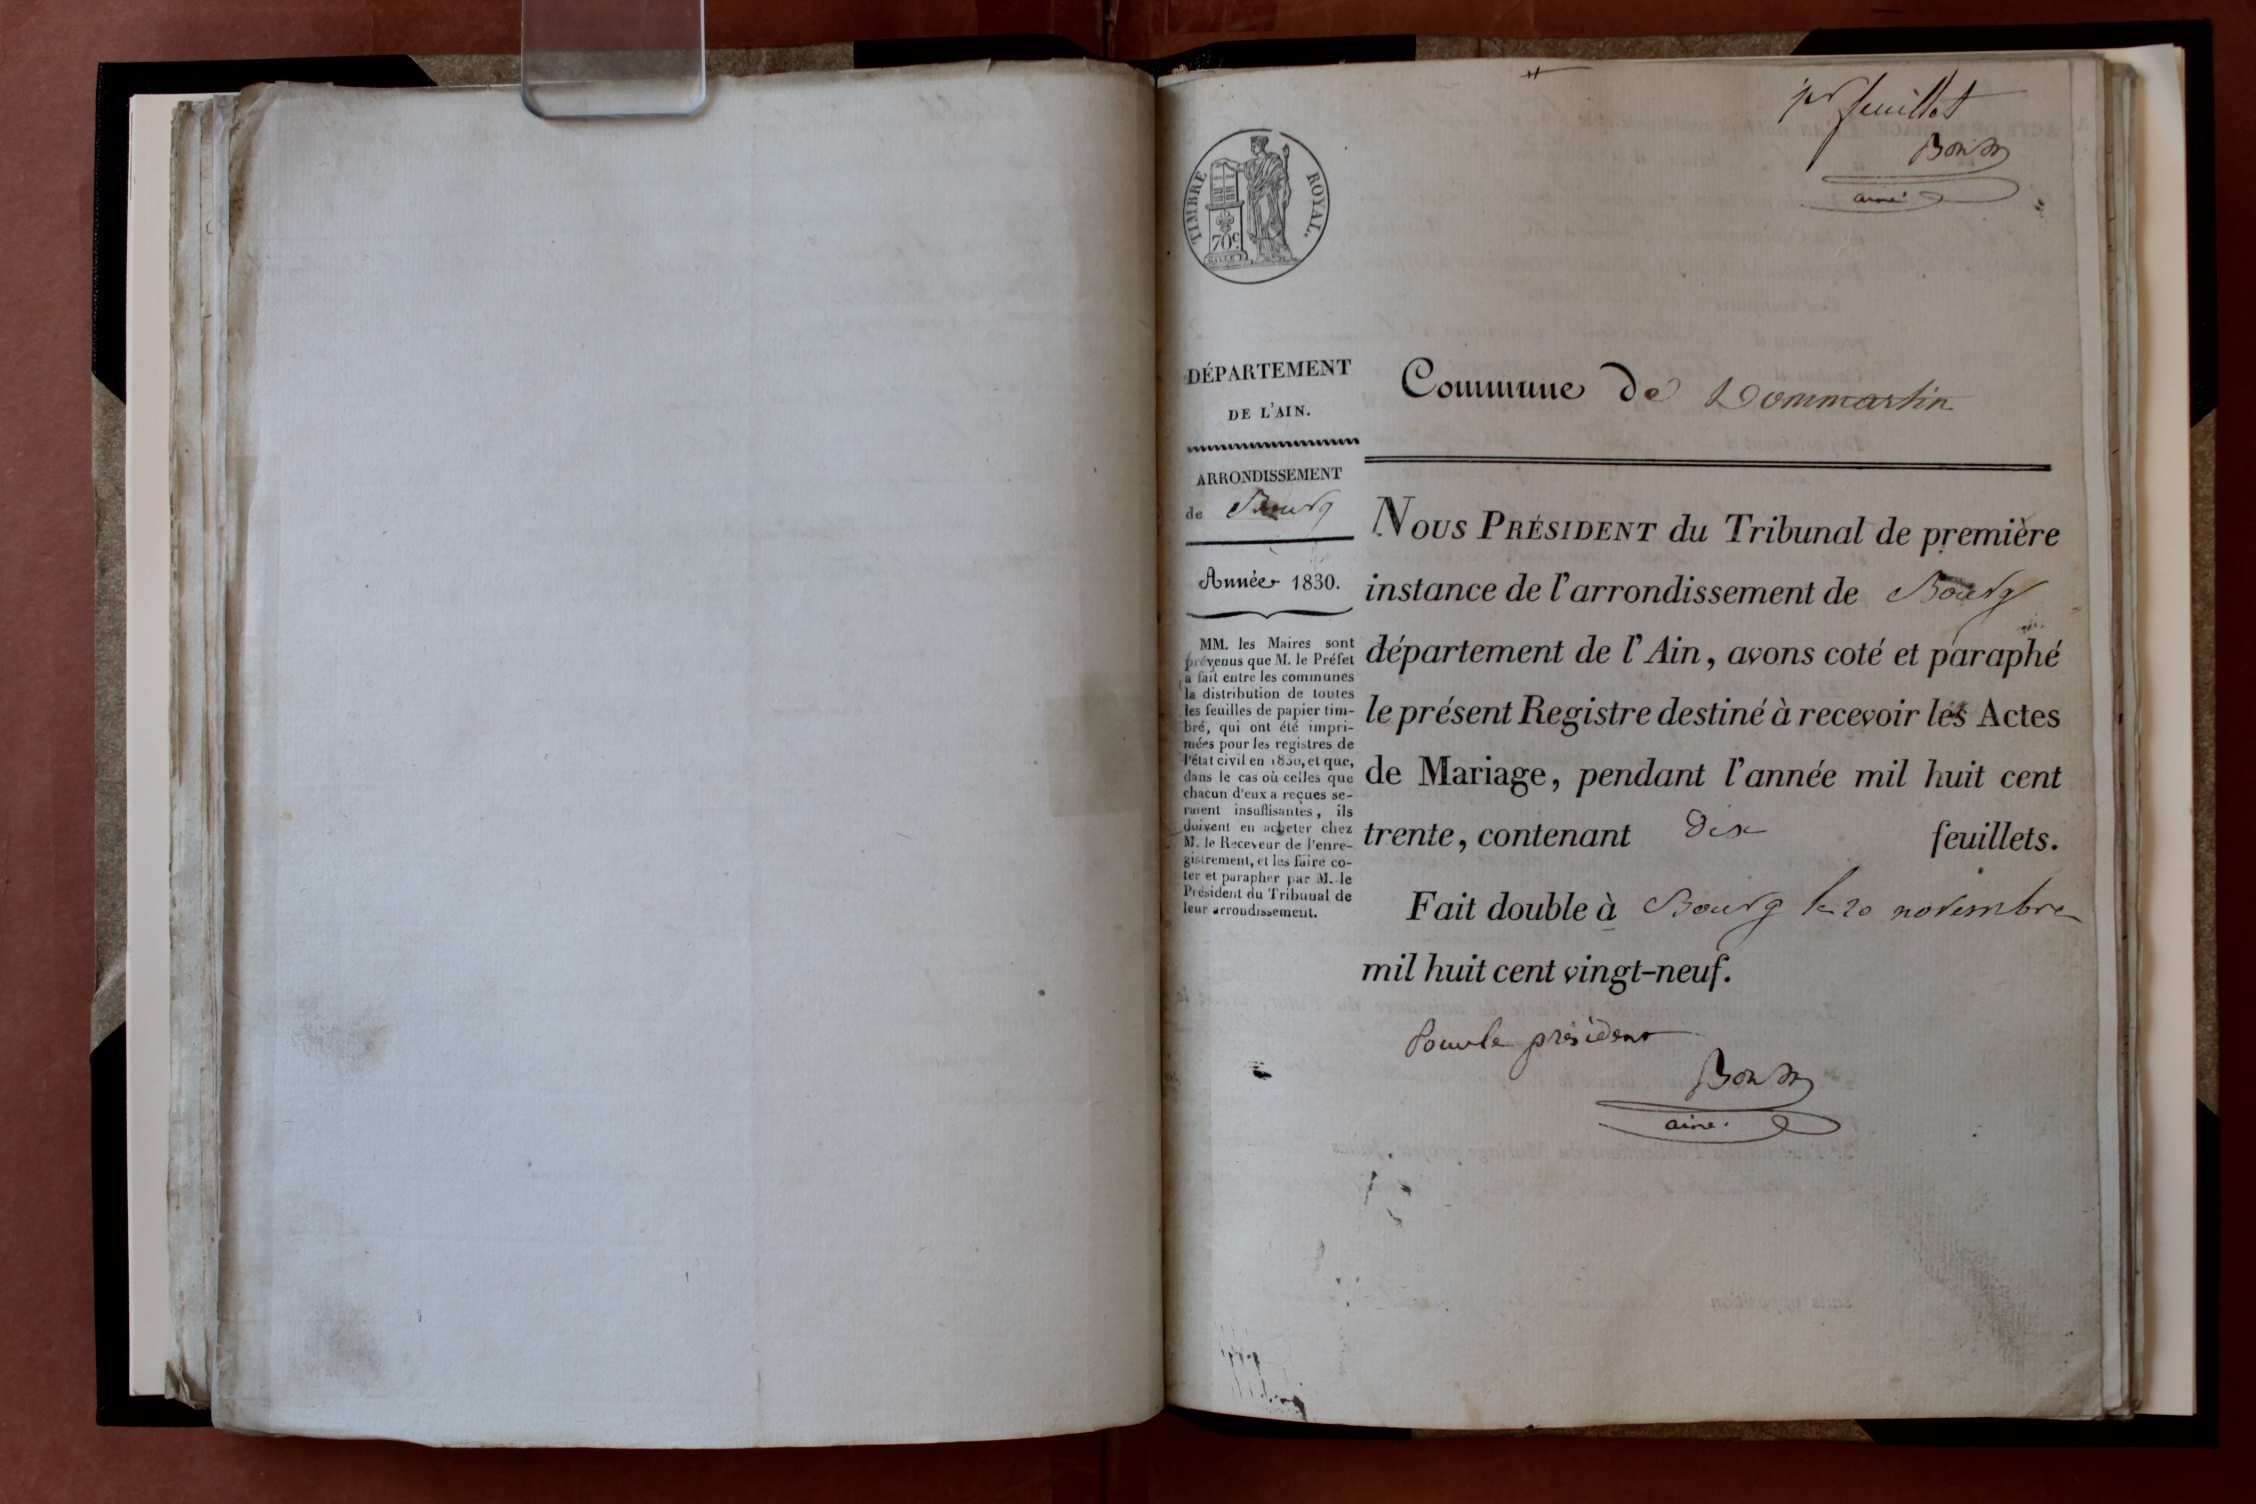 1er feuillet
aîné
TIMBRE ROYAL.
70c.
DÉPARTEMENT
DE L'AIN.
ARRONDISSEMENT
de Bourg
Année 1830.
MM. les Maires sont
prévenus que M. le Préfet
a fait entre les communes
la distribution de toutes
les feuilles de papier tim-
bré, qui ont été impri-
mées pour les registres de
l'état civil en 1830, et que,
dans le cas où celles que
chacun d'eux a reçues se-
raient insuffisantes, ils
doivent en acheter chez
M. le Receveur de l'enre-
gistrement, et les faire co-
ter et parapher par M. le
Président du Tribunal de
leur arrondissement.
Commune de Dommartin
NOUS PRÉSIDENT du Tribunal de première
instance de l'arrondissement de Bourg
département de l'Ain, avons coté et paraphé
le présent Registre destiné à recevoir les Actes
de Mariage, pendant l'année mil huit cent
trente, contenant dix feuillets.
Fait double à Bourg le 20 novembre
mil huit cent vingt-neuf.
Pour le président
aîné.